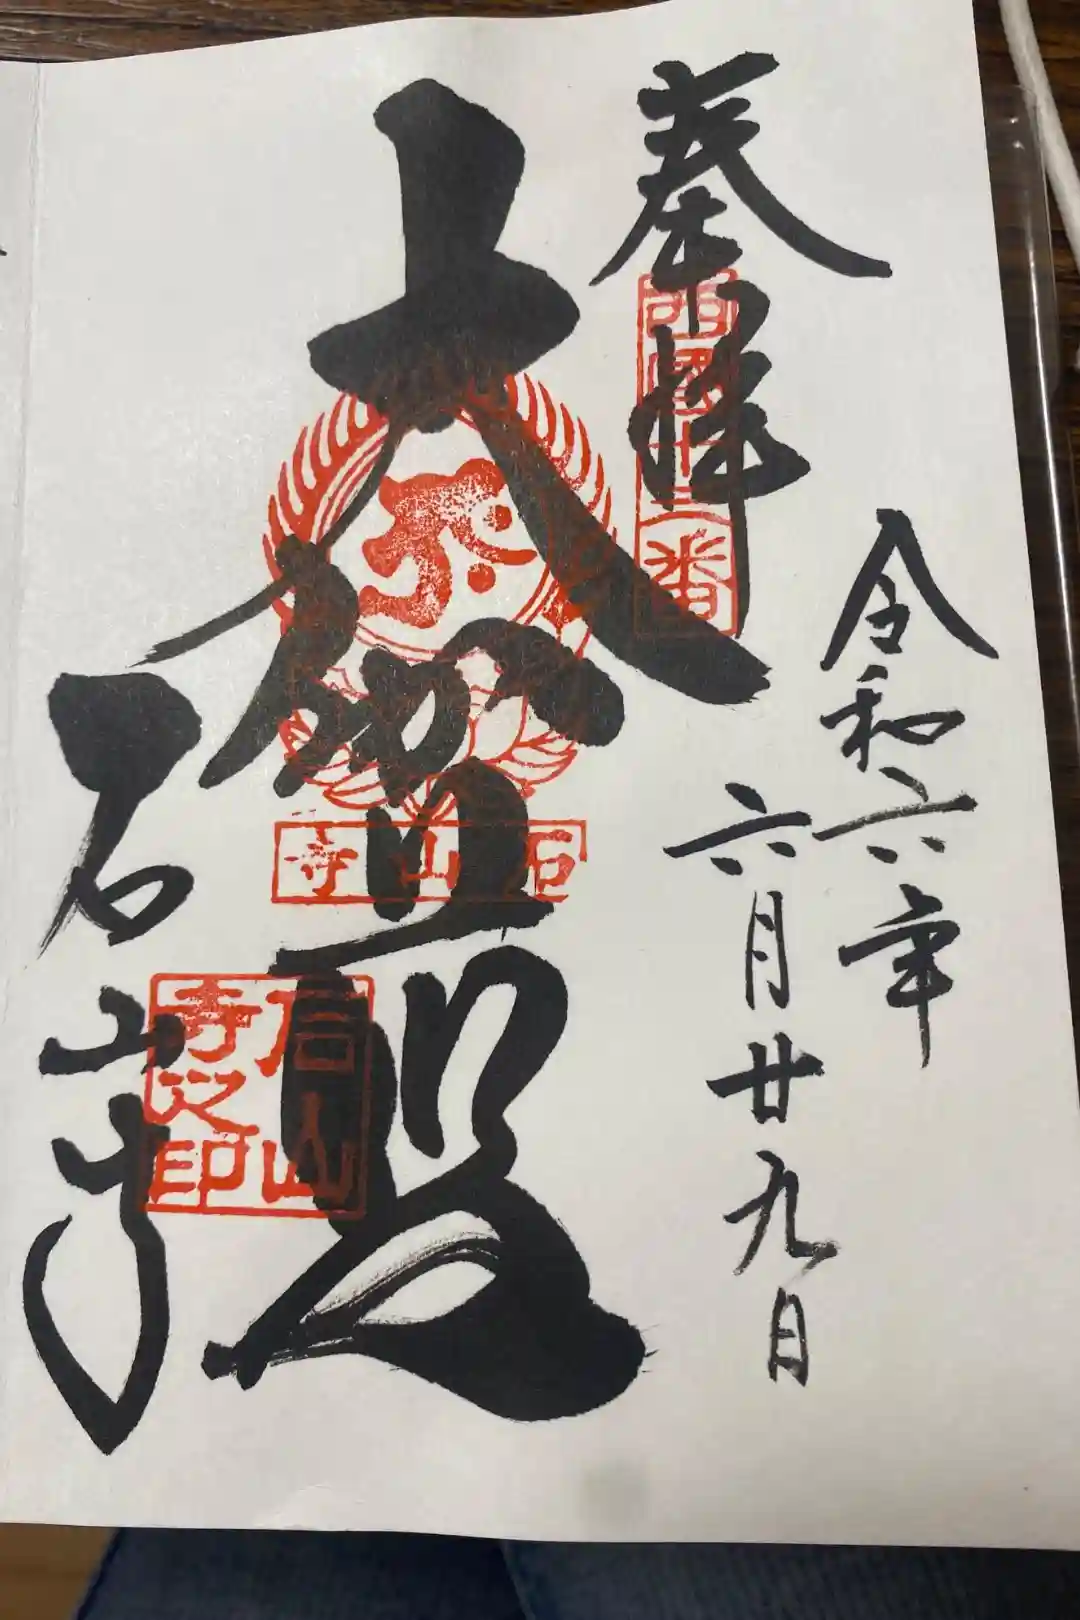 奉拝
西国十三番
令和六年
六月廿九日
大
石山寺
石山寺
石山寺之印